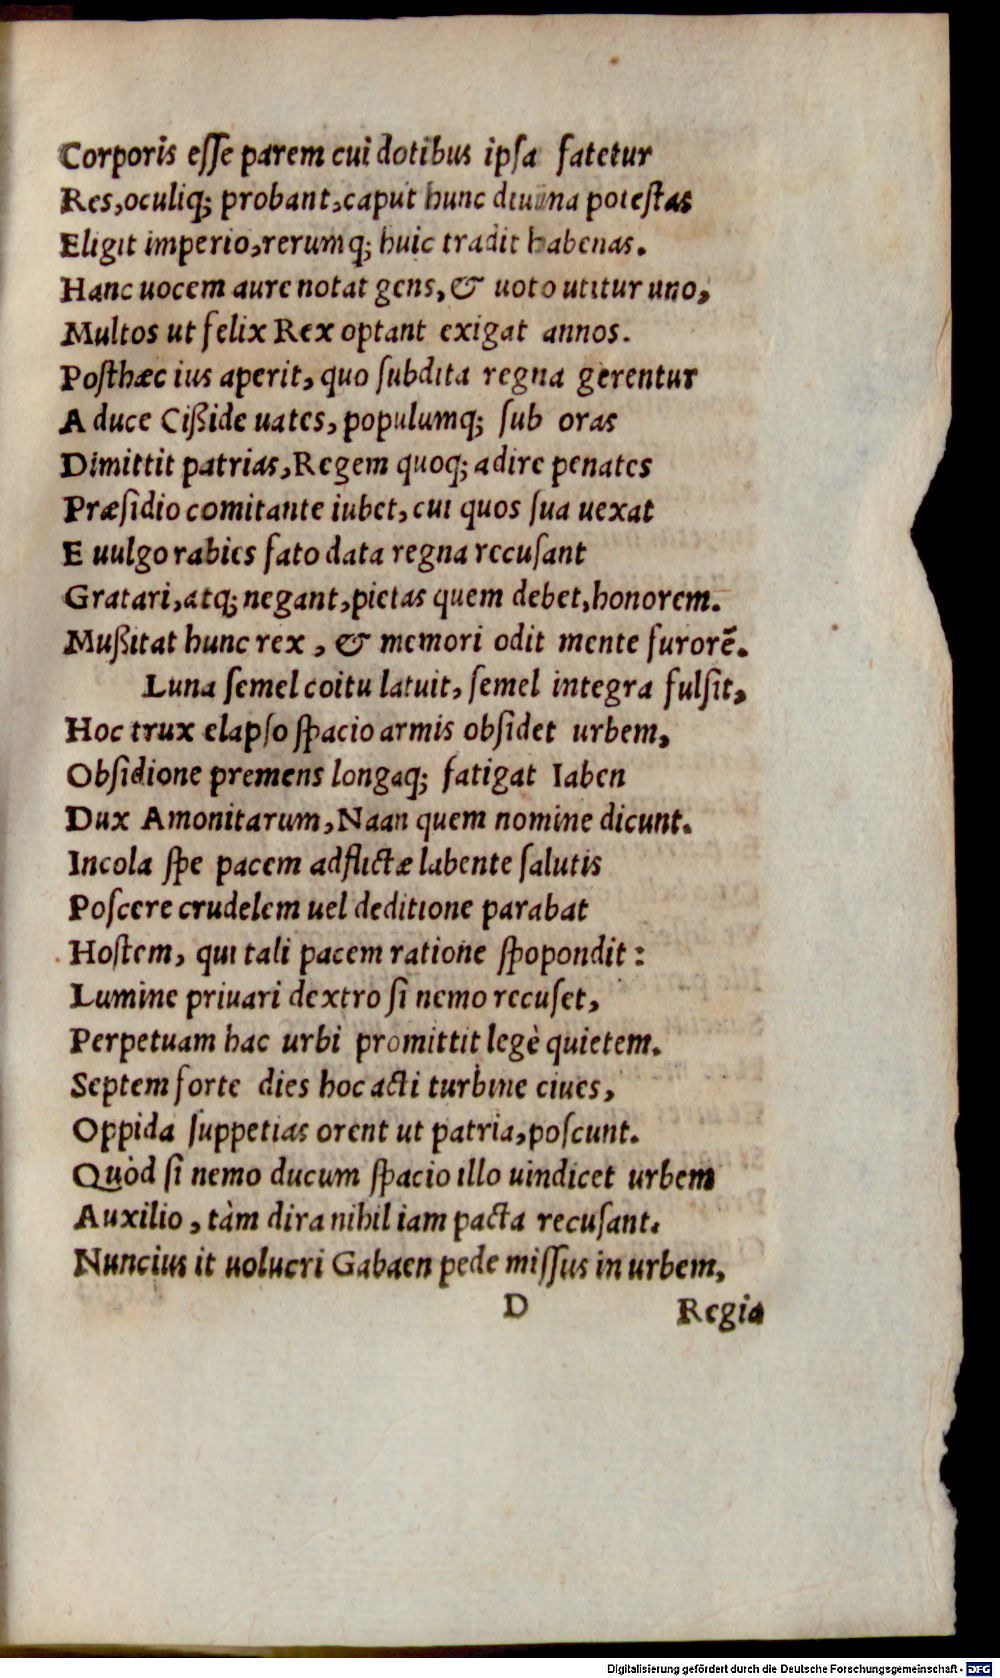 Corporis eſſe parem cui dotibus ipſa fatetur
Res,oculiq; probant,caput hunc diuina poteſtas
Eligit imperio,rerumq; huic tradit habenas.
Hanc uocem aure notat gens, & uoto utitur uno,
Multos ut felix Rex optant exigat annos.
Poſthæc ius aperit, quo ſubdita regna gerentur
A duce Cißide uates, populumq; ſub oras
Dimittit patrias, Regem quoq; adire penates
Præſidio comitante iubet, cui quos ſua uexat
E uulgo rabies fato data regna recuſant
Gratari,atq; negant,pietas quem debet,honorem.
Mußitat hunc rex , & memori odit mente furorē.
Luna ſemel coitu latuit, ſemel integra fulſit,
Hoc trux elapſo ſpacio armis obſidet urbem,
Obſidione premens longaq; fatigat Iaben
Dux Amonitarum, Naan quem nomine dicunt.
Incola ſpe pacem adflictæ labente ſalutis
Poſcere crudelem uel deditione parabat
Hoſtem, qui tali pacem ratione ſpopondit :
Lumine priuari dextro ſi nemo recuſet,
Perpetuam hac urbi promittit legè quietem.
Septem forte dies hoc acti turbine ciues,
Oppida ſuppetias orent ut patria,poſcunt.
Quòd ſi nemo ducum ſpacio illo uindicet urbem
Auxilio , tàm dira nihil iam pacta recuſant.
Nuncius it uolucri Gabaen pede miſſus in urbem,
D Regia
Digitalisierung gefördert durch die Deutsche Forschungsgemeinschaft - DFG